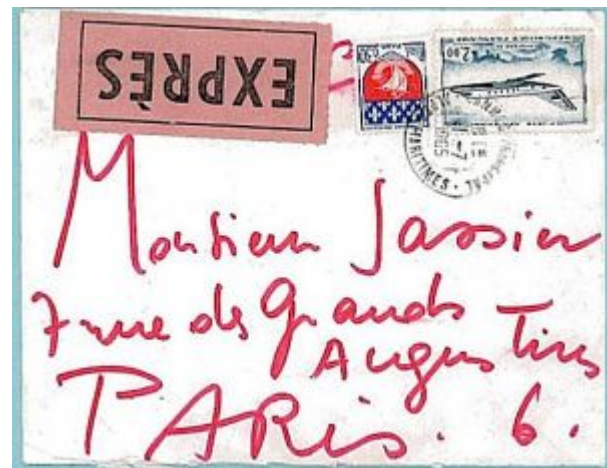 EXPRÈS
PARIS
0,30
2,00
MARITIMES
Monsieur Sassier
7 rue des Grands
Augustins
PARIS. 6.